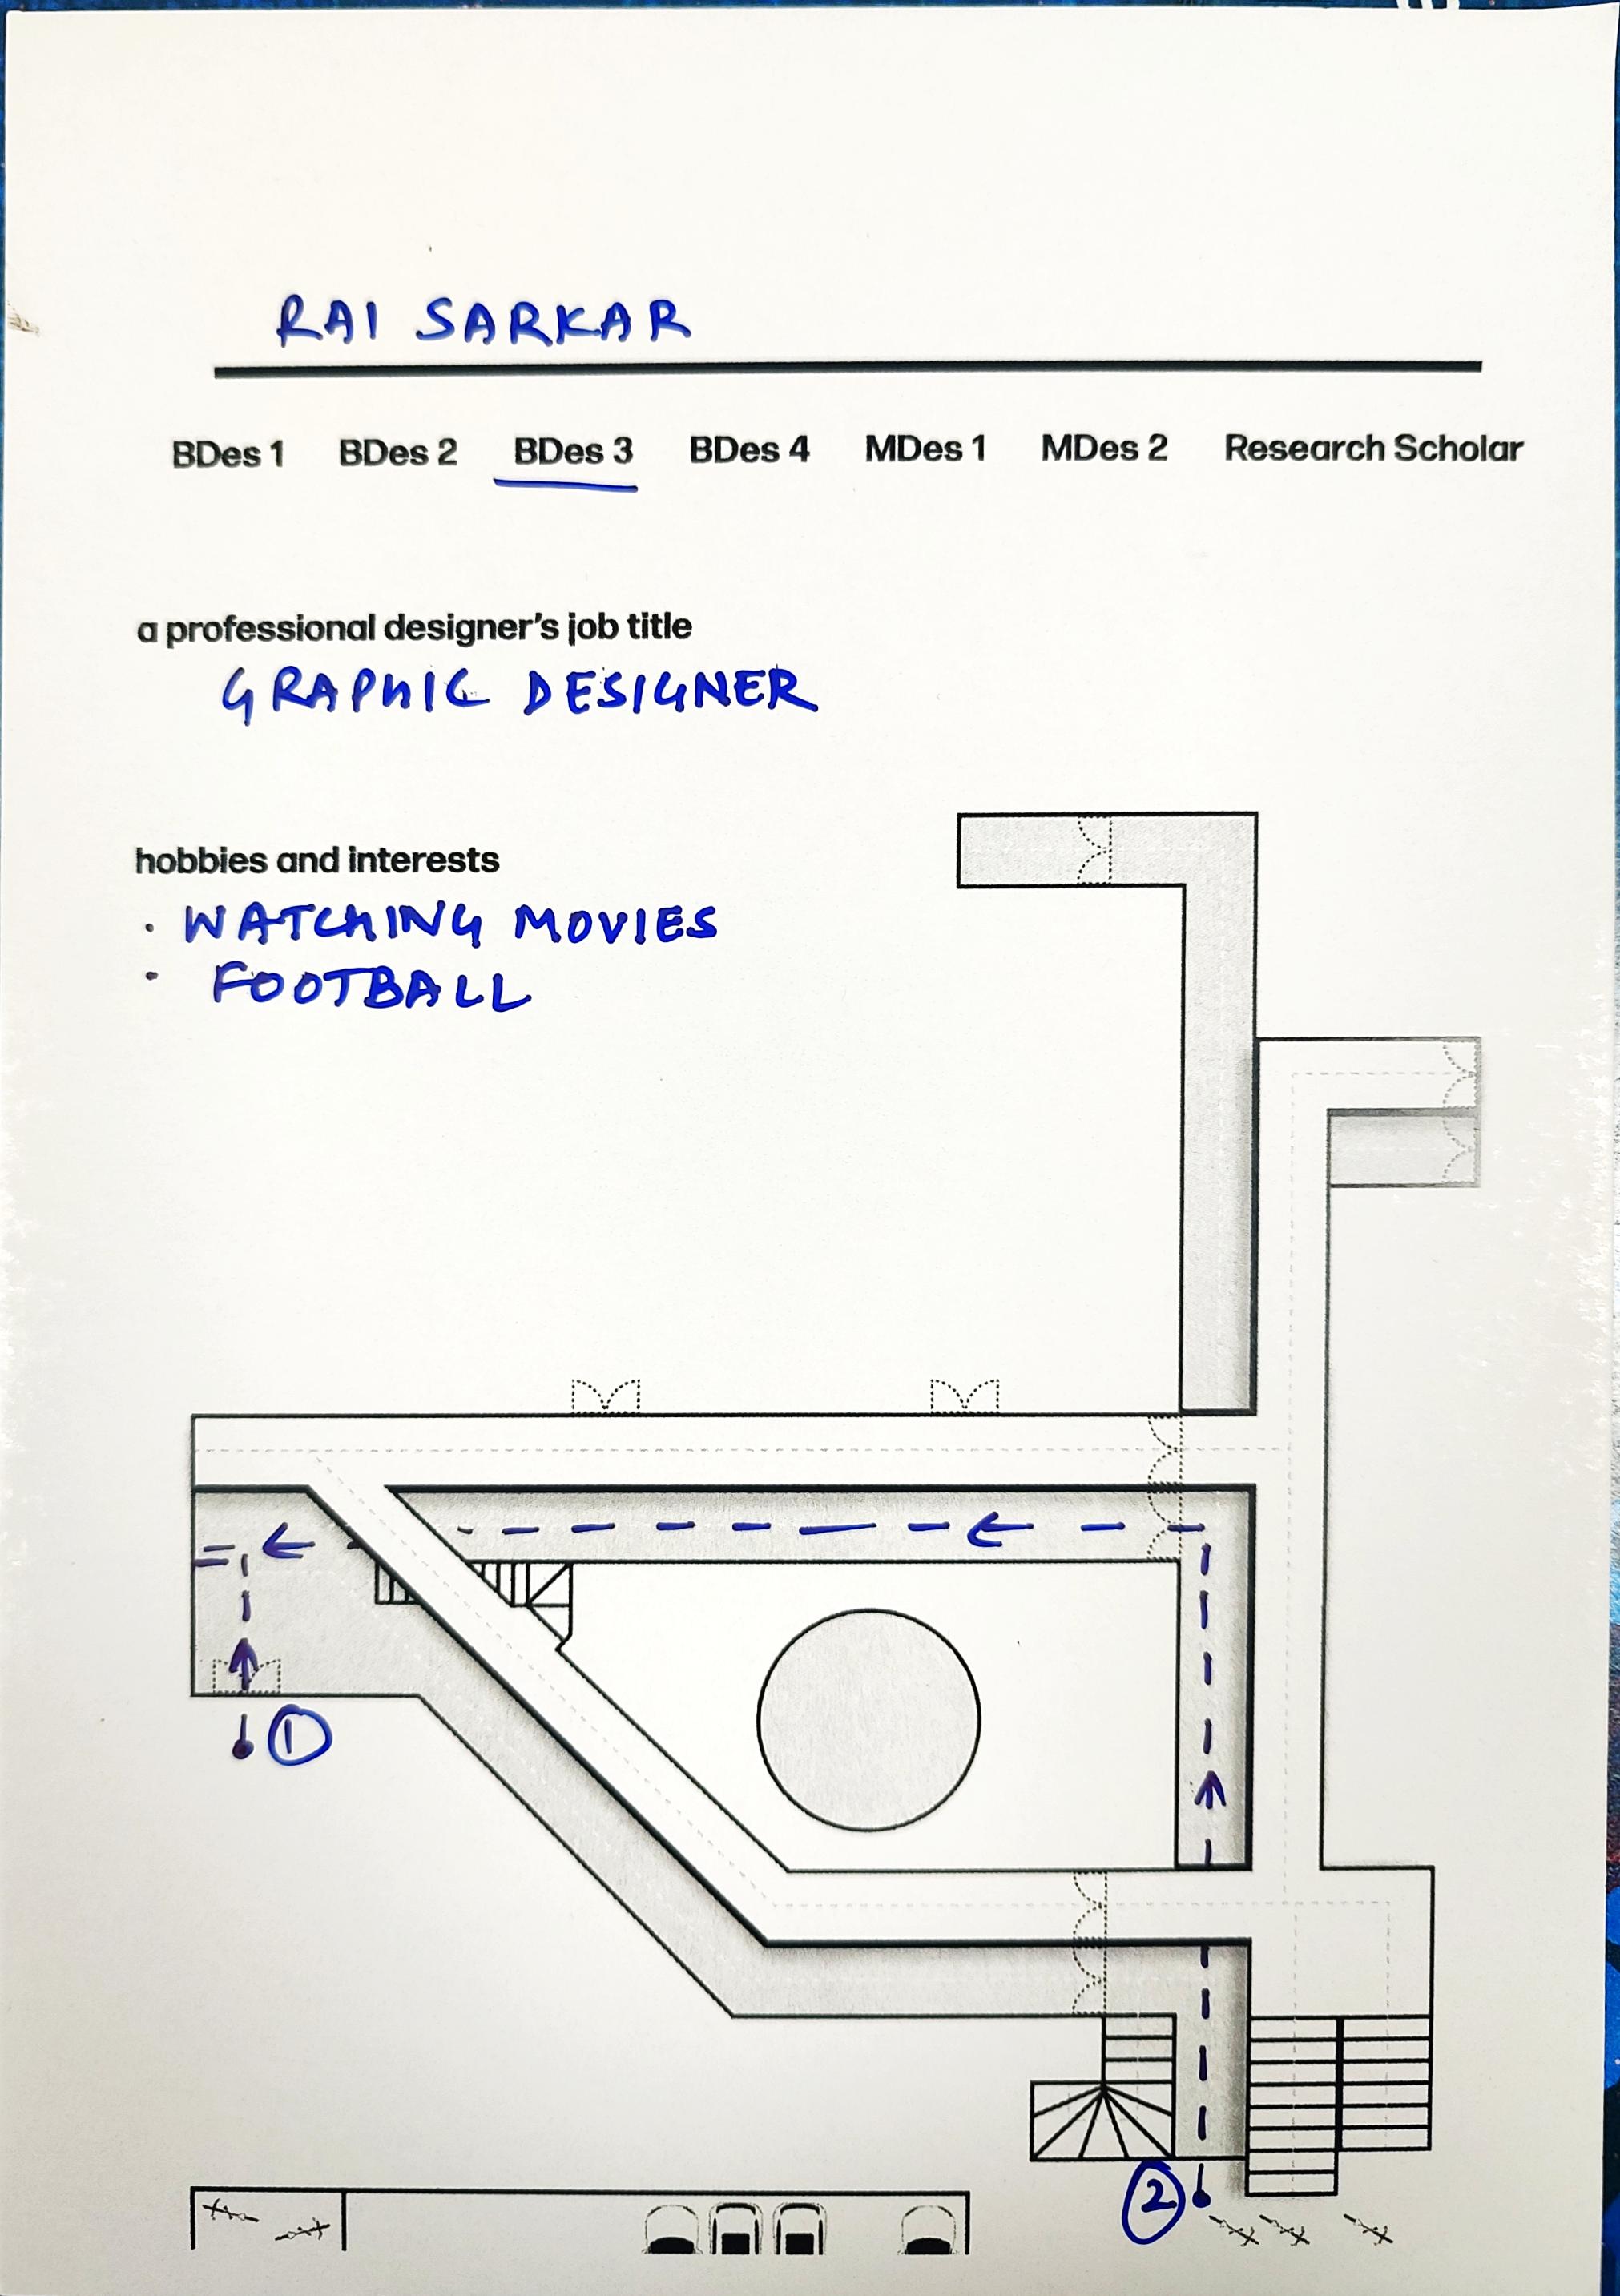 RAI SARKAR
BDes 1 BDes 2 BDes 3 BDes 4 MDes 1 MDes 2 Research Scholar
a professional designer's job title
GRAPHIC DESIGNER
hobbies and interests
. WATCHING MOVIES
. FOOTBALL
1
2